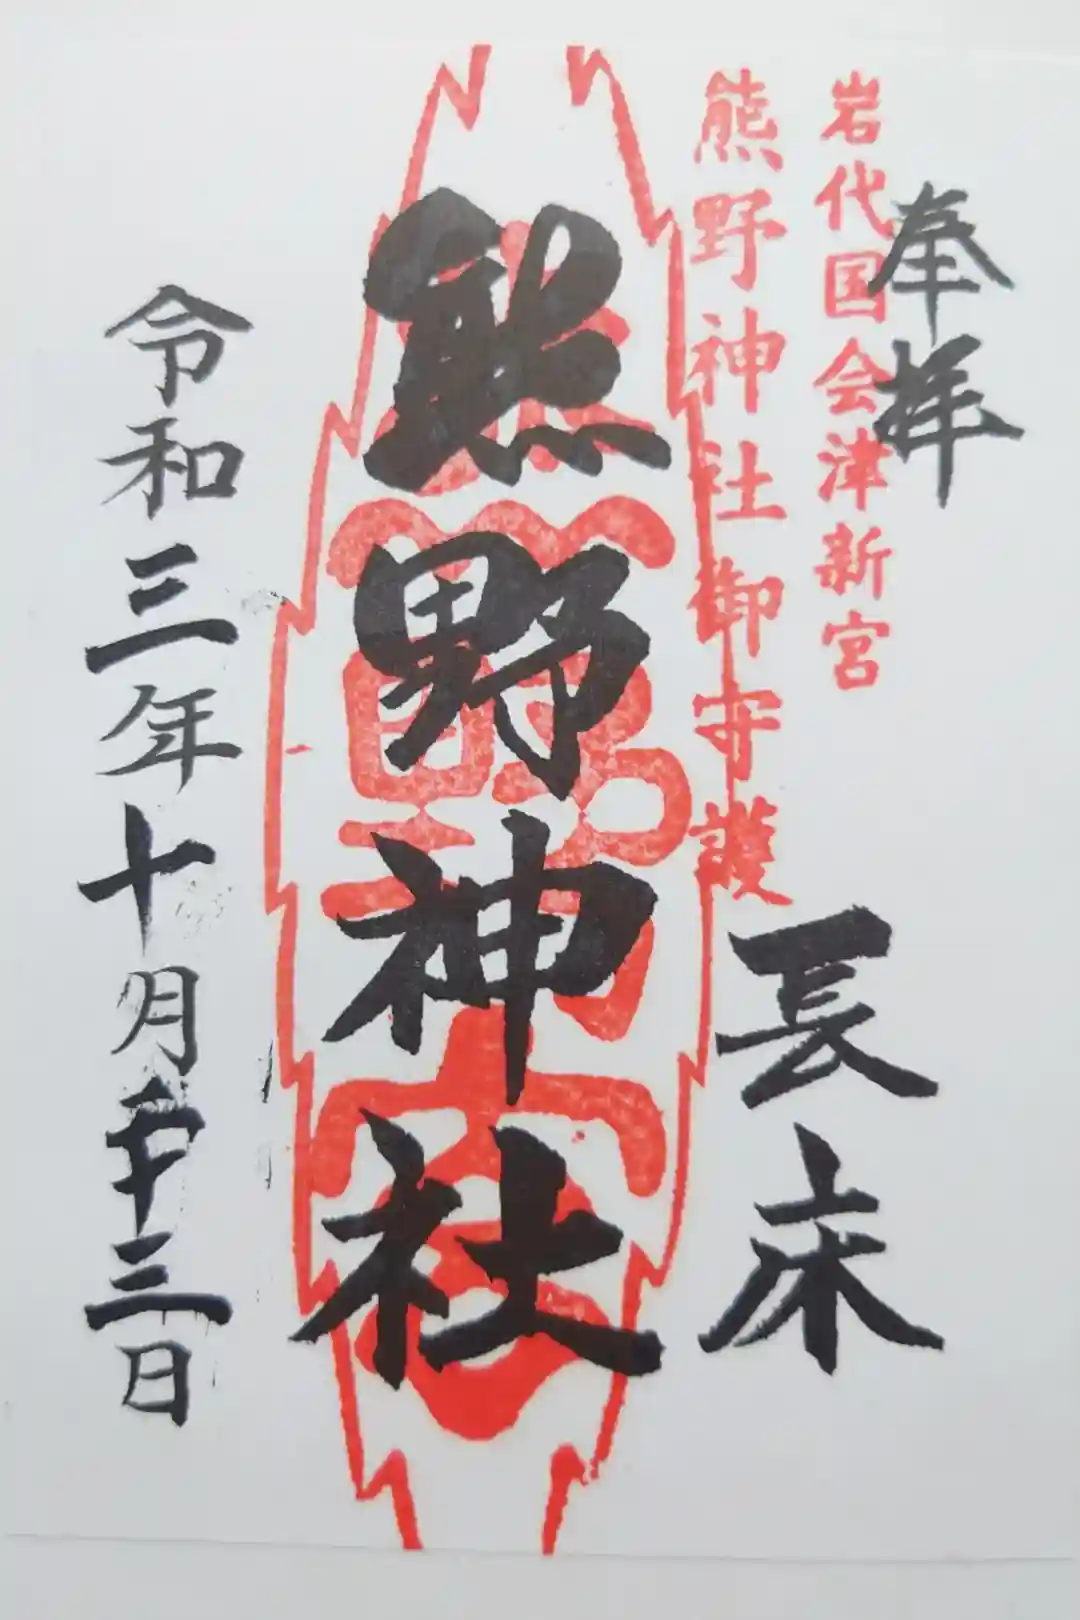 奉拝
岩代国会津新宮
熊野神社御守護
長床
熊野神社
令和三年十月二十三日